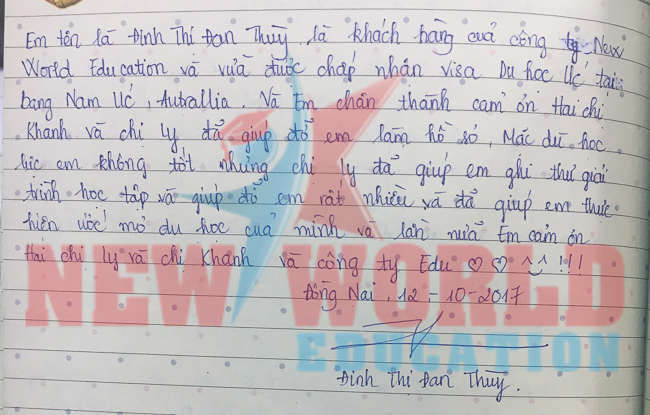 Em tên là Đinh Thị Đan Thùy, là khách hàng của công ty New
World Education và vừa được chấp nhận visa Du học Úc tại
bang Nam Úc, Autrallia. Và Em chân thành cảm ơn Hai chị
Khanh và chị Ly đã giúp đỡ em làm hồ sơ, Mặc dù học
lực em không tốt nhưng chị Ly đã giúp em ghi thư giải
trình học tập và giúp đỡ em rất nhiều và đã giúp em thực
hiện ước mơ du học của mình và lần nữa Em cảm ơn
Hai chị Ly và chị Khanh và công ty Edu ♡ ♡ ^^ !!!
NEW WORLD
Đồng Nai, 12 - 10 - 2017
EDUCATION
Đinh Thị Đan Thùy.